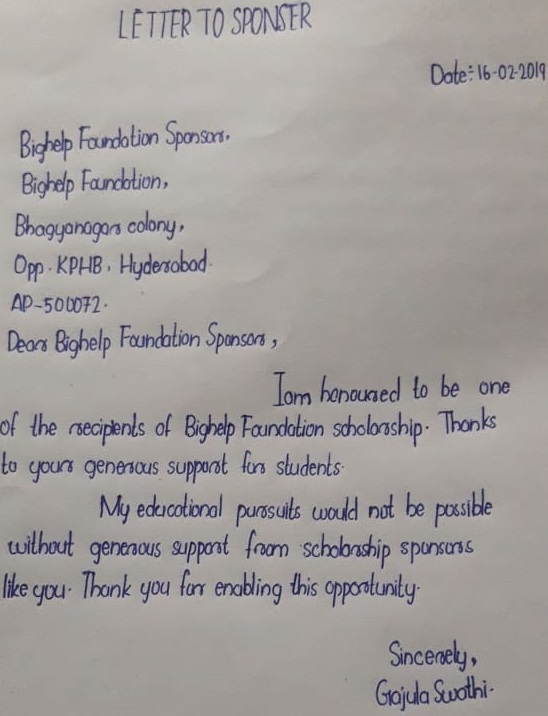 LETTER TO SPONSER
Date: 16-02-2019
Bighelp Foundation Sponsor,
Bighelp Foundation,
Bhagyanagar colony,
Opp. KPHB, Hyderabad.
AP-500072.
Dear Bighelp Foundation Sponsor,
I am honoured to be one
of the recipients of Bighelp Foundation scholarship. Thanks
to your generous support for students.
My educational pursuits would not be possible
without generous support from scholarship sponsors
like you. Thank you for enabling this opportunity.
Sincerely,
Gajula Swathi.